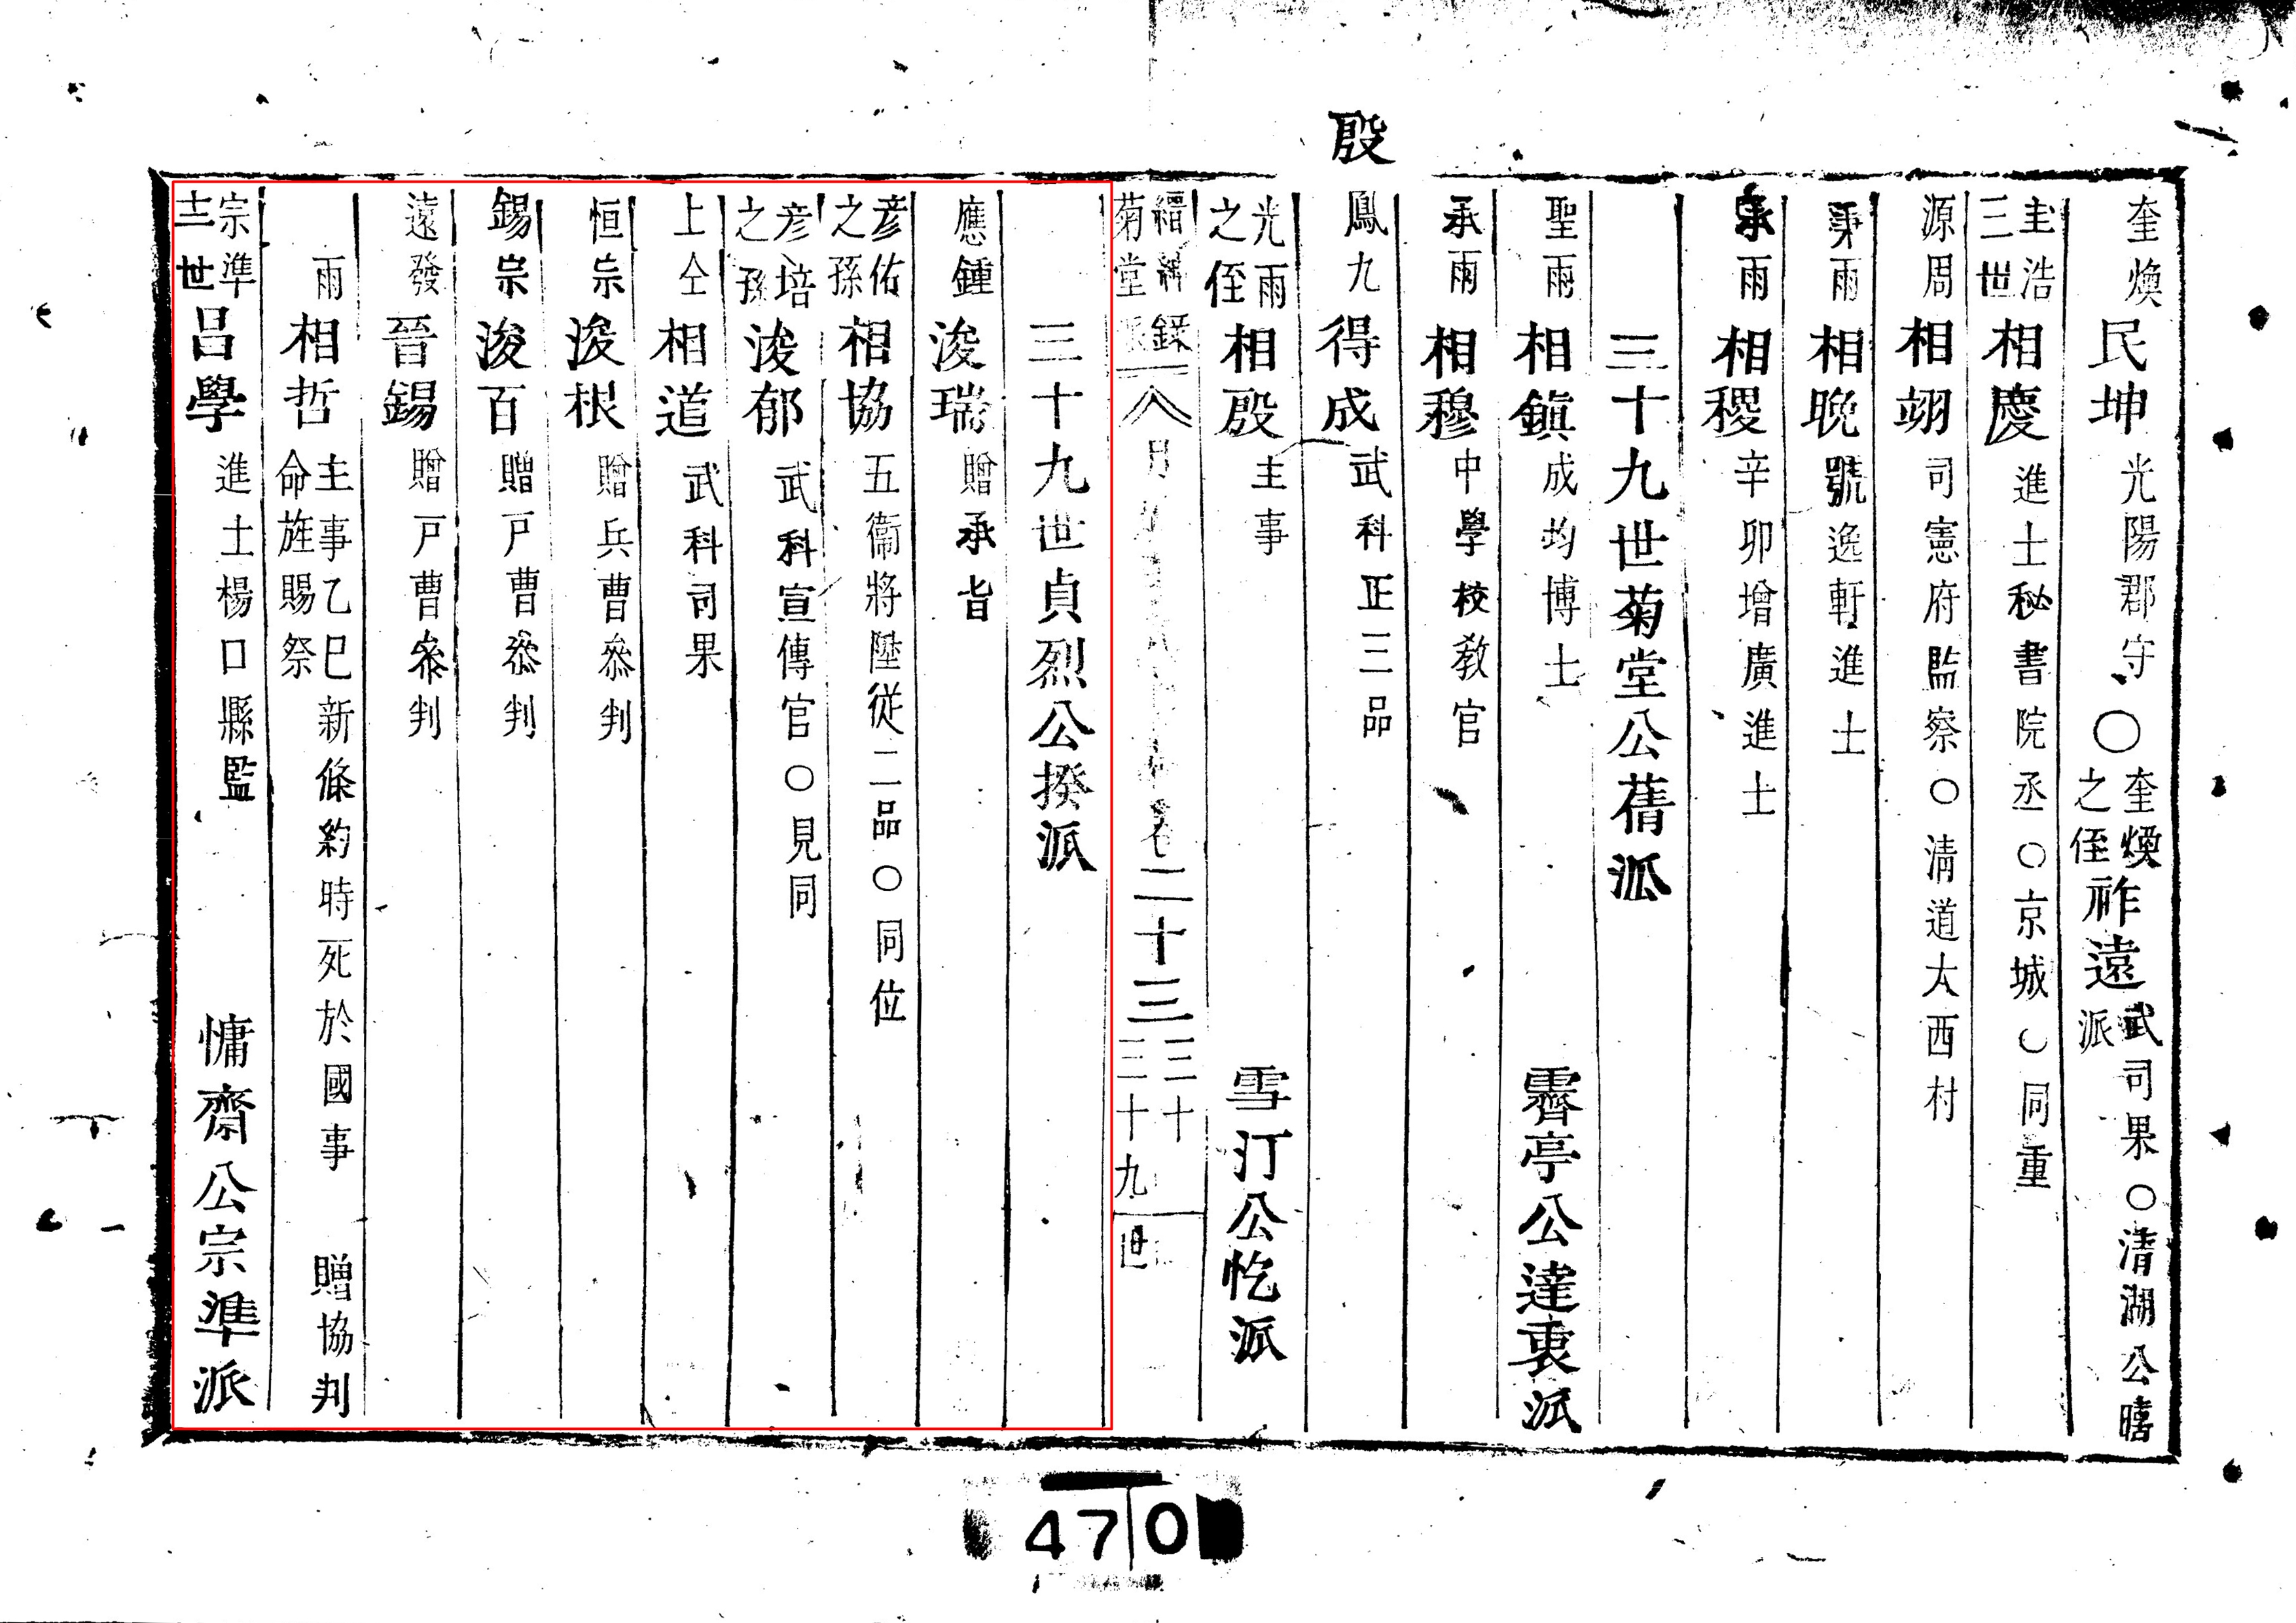 殷
奎煥 民坤 光陽郡守 ○ 奎煥之侄 祚遠 武司果 ○清湖公暿派
圭浩三世 相慶 進士秘書院丞 ○京城 ○同重
源周 相翊 司憲府監察 ○清道大西村
秉雨 相晩 號逸軒進士
承雨 相稷 辛卯增廣進士
三十九世菊堂公蒨派
聖雨 相鎭 成均博士 霽亭公達衷派
承雨 相穆 中學校教官
鳳九 得成 武科正三品
光雨之侄 相殷 主事 雪汀公忔派
縉紳錄 八 卷二十三 三十
菊堂派 三十九世
三十九世貞烈公揆派
應鍾 浚瑞 贈承旨
彦佑之孫 相協 五衛將陞從二品 ○同位
彦培之孫 浚郁 武科宣傳官 ○見同
上仝 相道 武科司果
恒宗 浚根 贈兵曹叅判
錫宗 浚百 贈戸曹叅判
遠發 晉錫 贈戸曹叅判
雨 相哲 主事乙巳新條約時死於國事 贈協判命旌賜祭
宗準十二世 呂學 進士楊口縣監 慵齋公宗準派
470